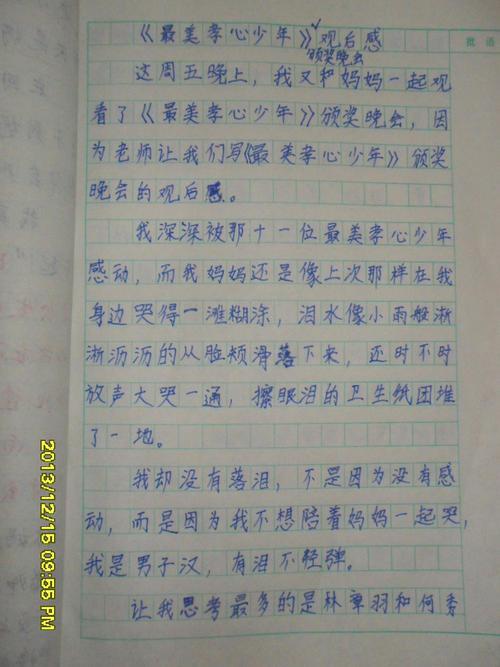 批语
《最美孝心少年》观后感
颁奖晚会
这周五晚上，我又和妈妈一起观
看了《最美孝心少年》颁奖晚会，因
为老师让我们写《最美孝心少年》颁奖
晚会的观后感。
我深深被那十一位最美孝心少年
感动，而我妈妈还是像上次那样在我
身边哭得一滩糊涂，泪水像小雨般淅
淅沥沥的从脸颊滑落下来，还时不时
放声大哭一通，擦眼泪的卫生纸团堆
了一地。
我却没有落泪，不是因为没有感
动，而是因为我不想陪着妈妈一起哭，
我是男子汉，有泪不轻弹。
让我思考最多的是林章羽和何秀
2013/12/15 09:55 PM